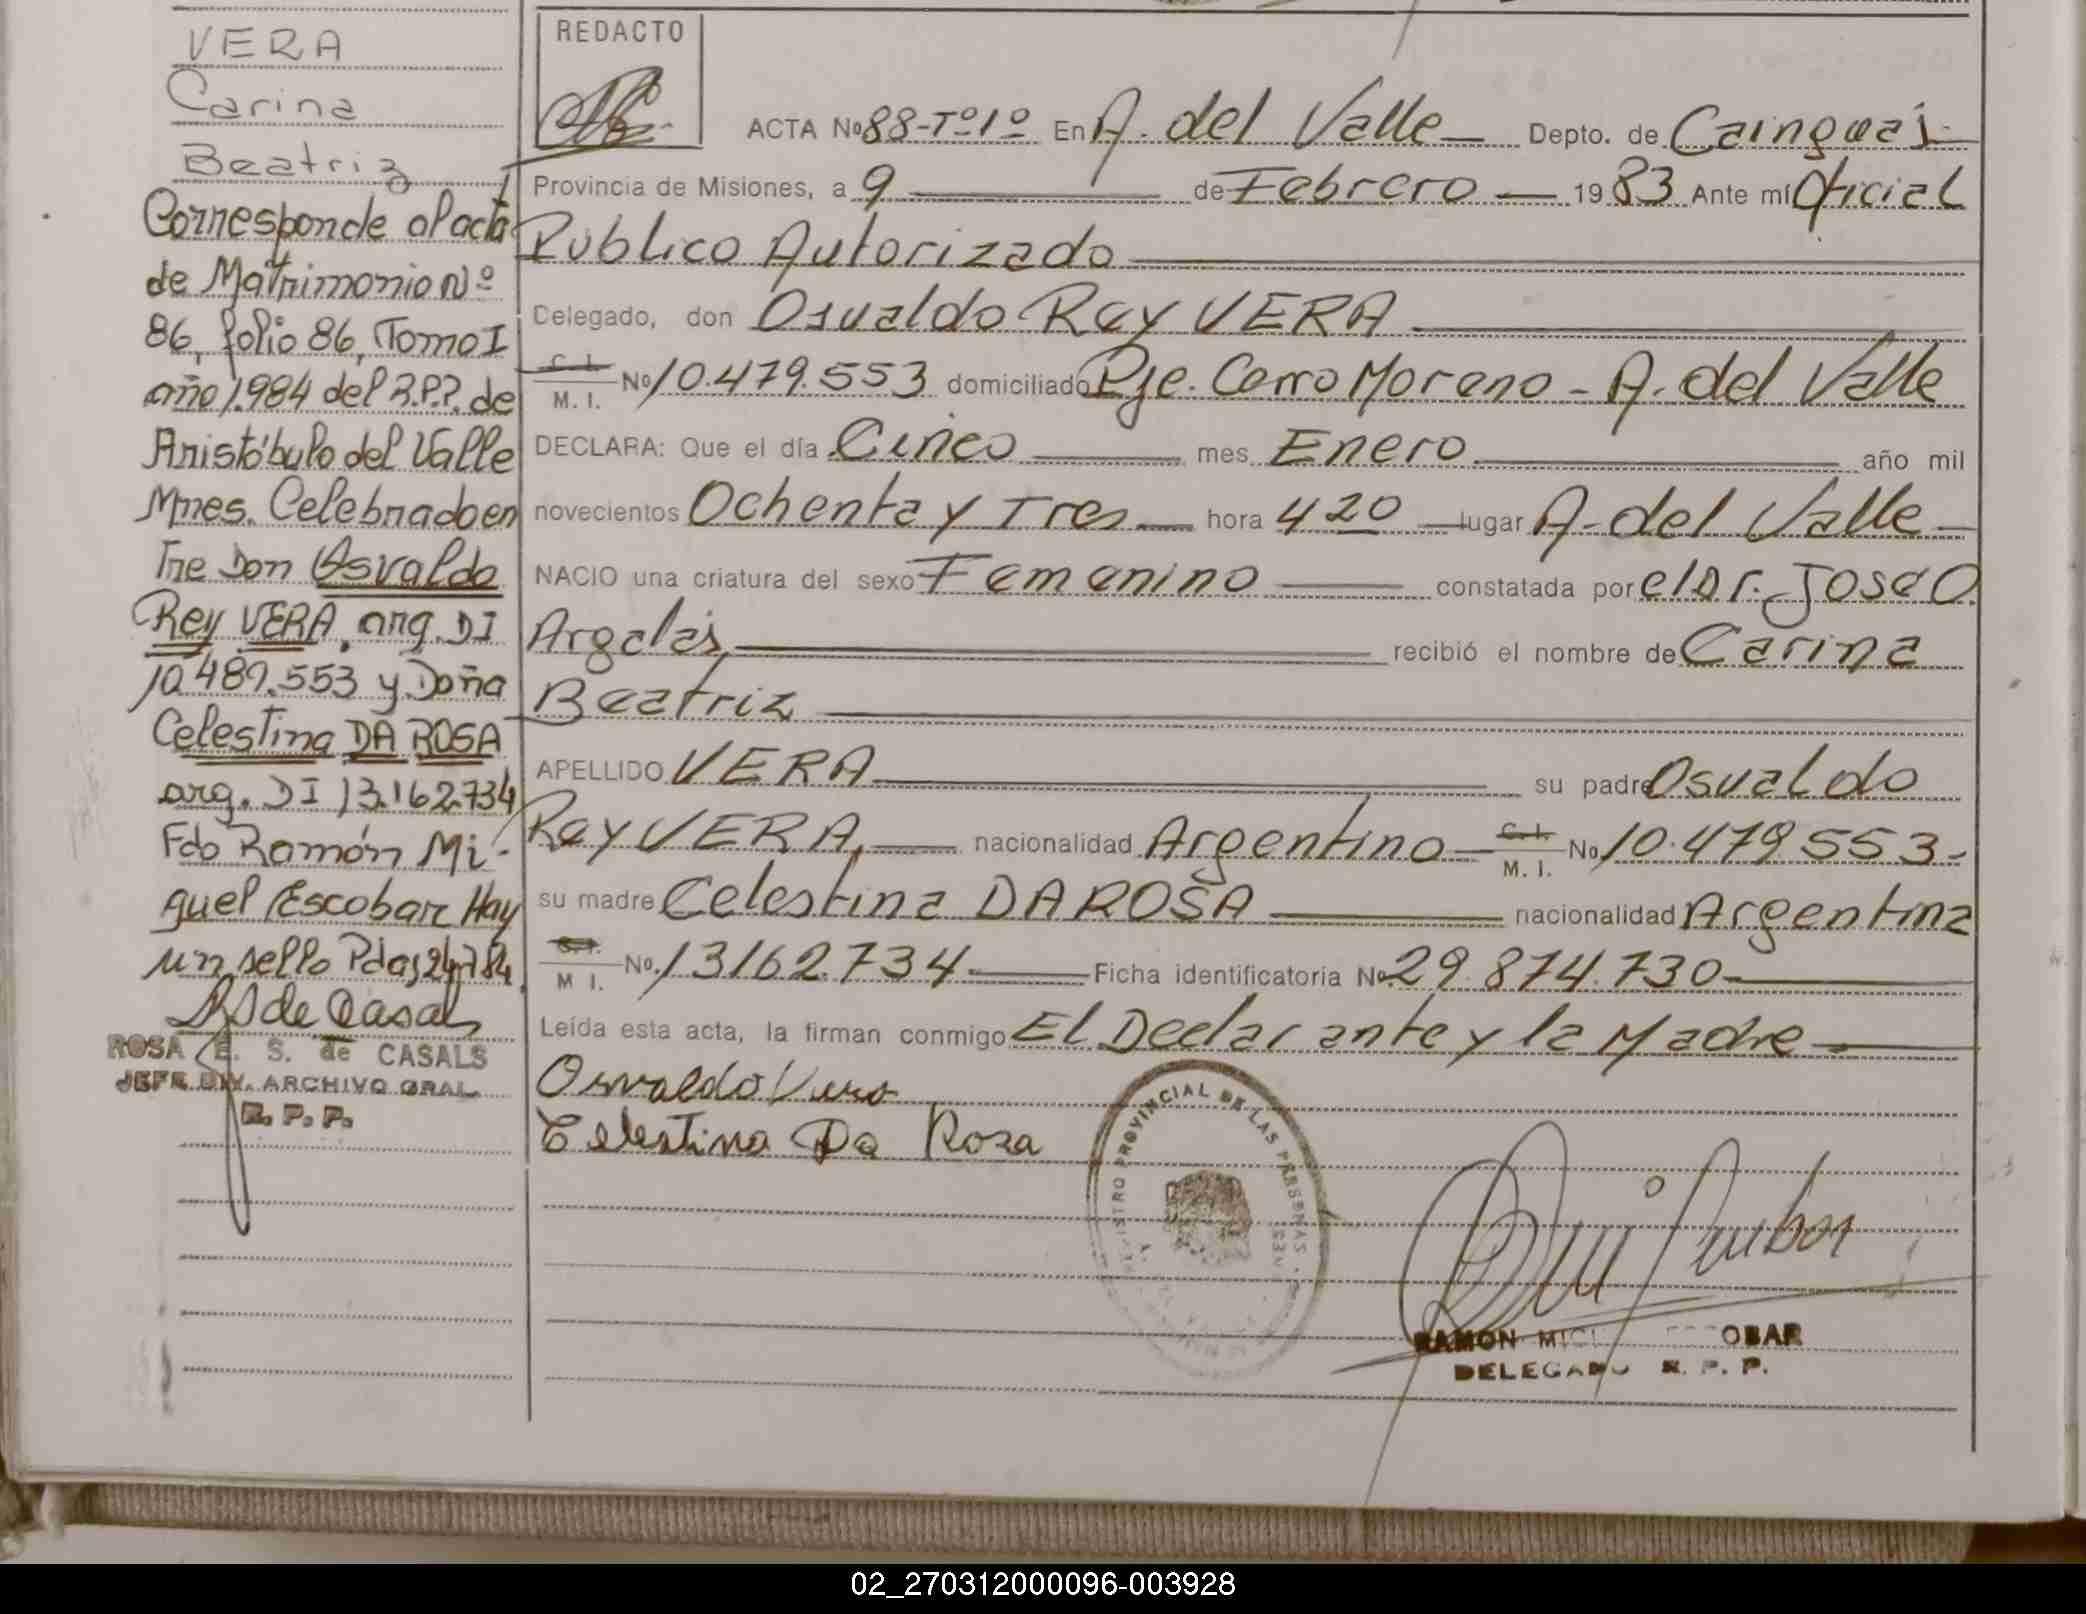 VERA
Carina
Beatriz
Corresponde al acta
de Matrimonio Nº
86, folio 86, Tomo I
año 1.984 del R.P.P. de
Aristóbulo del Valle
Mnes. Celebrado en
tre Don Osvaldo
Rey VERA, arg. DI
10.489.553 y Doña
Celestina DA ROSA
arg. DI 13.162.734
Fdo Ramón Mi-
guel Escobar Hay
un sello Pdas 24-7-84
RS de Casals
ROSA E. S. de CASALS
JEFE DIV. ARCHIVO GRAL.
R. P. P.
REDACTO
ACTA No 88-Tº1º En A. del Valle Depto. de Cainguás
Provincia de Misiones, a 9 de Febrero 1983 Ante mí Oficial
Público Autorizado
Celegado, don Osvaldo Rey VERA
C. I.
M. I. No 10.479.553 domiciliado Pje. Cerro Moreno - A. del Valle
DECLARA: Que el día Cinco mes Enero año mil
novecientos Ochenta y Tres hora 4 20 lugar A. del Valle
NACIO una criatura del sexo Femenino constatada por el Dr. José O.
Argalás recibió el nombre de Carina
Beatriz
APELLIDO VERA su padre Osvaldo
Rey VERA, nacionalidad Argentino C. I. M. I. No 10.479.553
su madre Celestina DA ROSA nacionalidad Argentina
C. I.
M I. No. 13162.734 Ficha identificatoria No 29.874.730
Leída esta acta, la firman conmigo El Declarante y la Madre
Osvaldo Vera
Celestina Da Rosa
REGISTRO PROVINCIAL DE LAS PERSONAS
RAMON MIGUEL ESCOBAR
DELEGADO R. P. P.
02_270312000096-003928